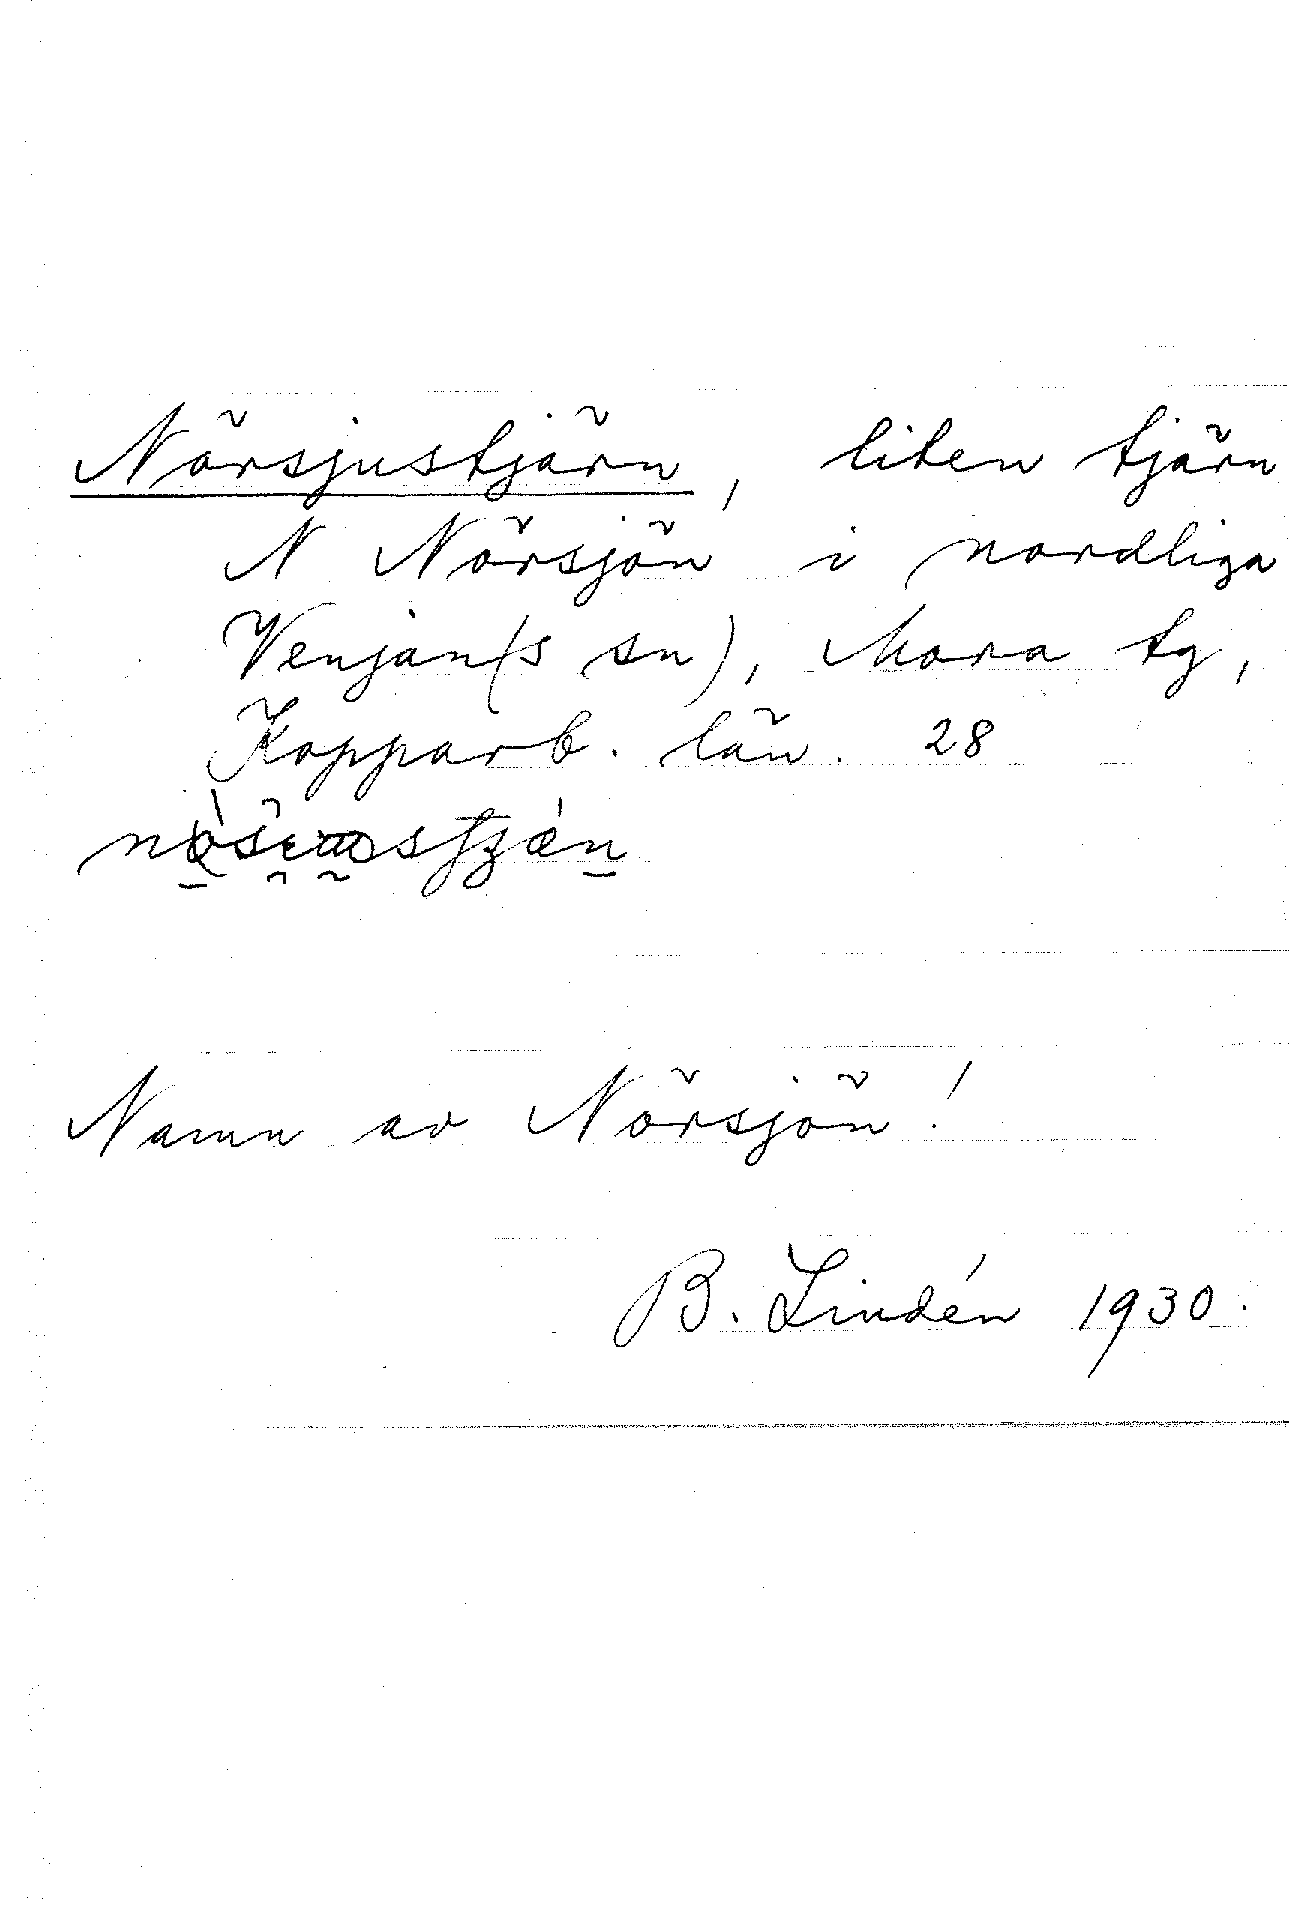 Nörsjustjärn, liten tjärn
N Nörsjön i nordliga
Venjan(s sn), Mora tg,
Kopparb. län. 28
Namn av Nörsjön!
B. Lindén 1930.